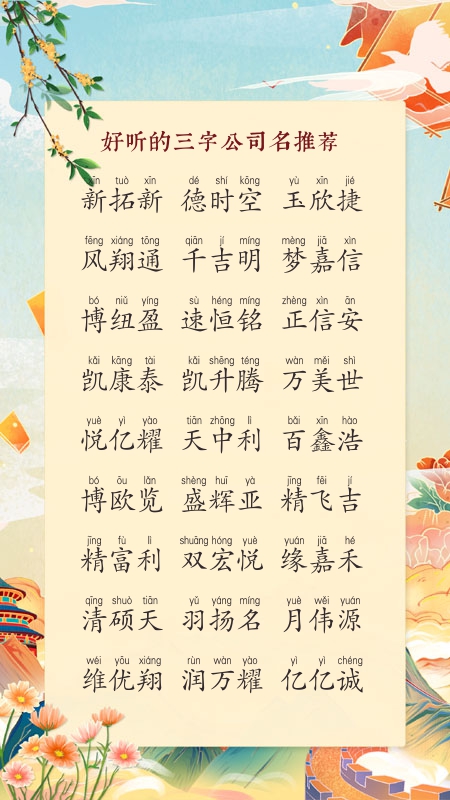 好听的三字公司名推荐
xīn tuò xīn dé shí kōng yù xīn jié
新拓新 德时空 玉欣捷
fēng xiáng tōng qiān jí míng mèng jiā xìn
风翔通 千吉明 梦嘉信
bó niǔ yíng sù héng míng zhèng xìn ān
博纽盈 速恒铭 正信安
kǎi kāng tài kǎi shēng téng wàn měi shì
凯康泰 凯升腾 万美世
yuè yì yào tiān zhōng lì bǎi xīn hào
悦亿耀 天中利 百鑫浩
bó ōu lǎn shèng huī yà jīng fēi jí
博欧览 盛辉亚 精飞吉
jīng fù lì shuāng hóng yuè yuán jiā hé
精富利 双宏悦 缘嘉禾
qīng shuò tiān yǔ yáng míng yuè wěi yuán
清硕天 羽扬名 月伟源
wéi yōu xiáng rùn wàn yào yì yì chéng
维优翔 润万耀 亿亿诚